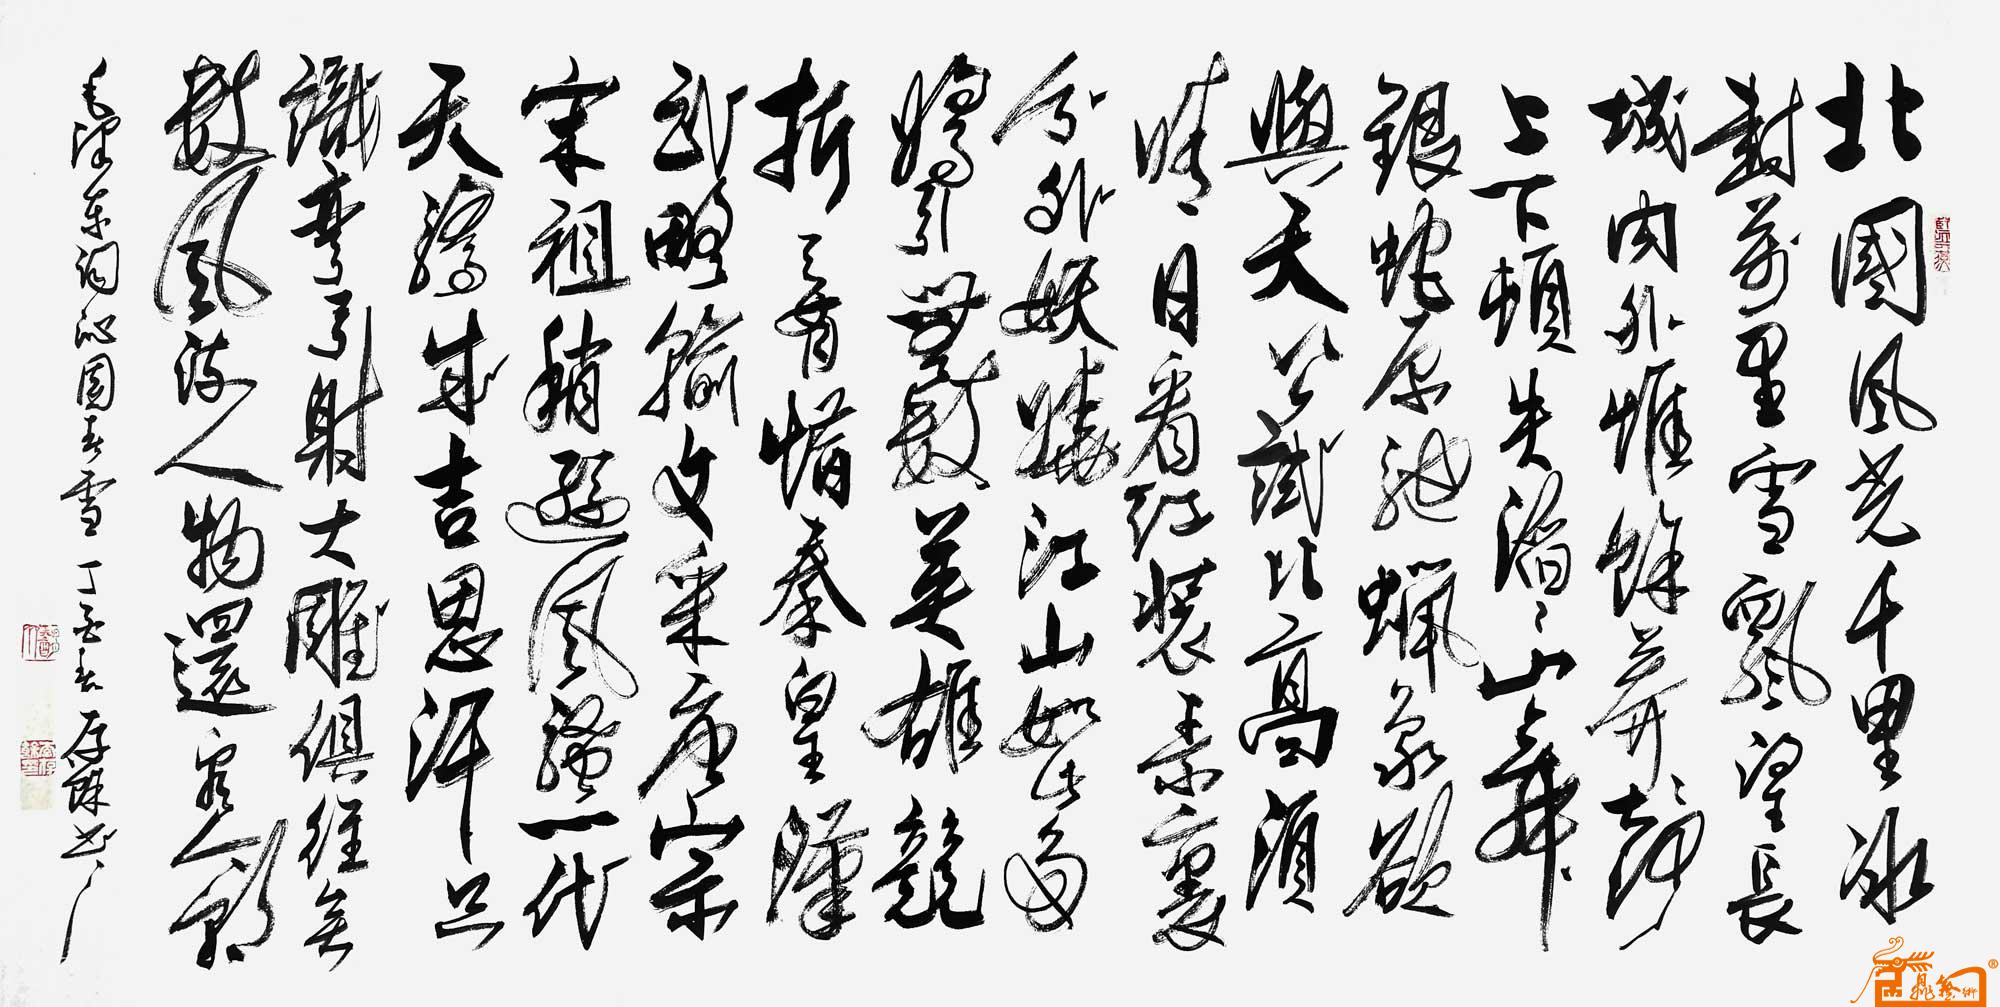 北國風光千里冰
封萬里雪飄望長
城内外惟餘莽〻大河
上下頓失滔〻山舞
銀蛇原馳蠟象欲
與天公試比高須
晴日看紅裝素裹
分外妖嬈江山如此多
嬌引無數英雄競
折腰惜秦皇漢
武略輸文采唐宗
宋祖稍遜風騷一代
天驕成吉思汗只
識彎弓射大雕俱往矣
數風流人物還看今朝
毛澤东词沁园春雪 丁亥春 书